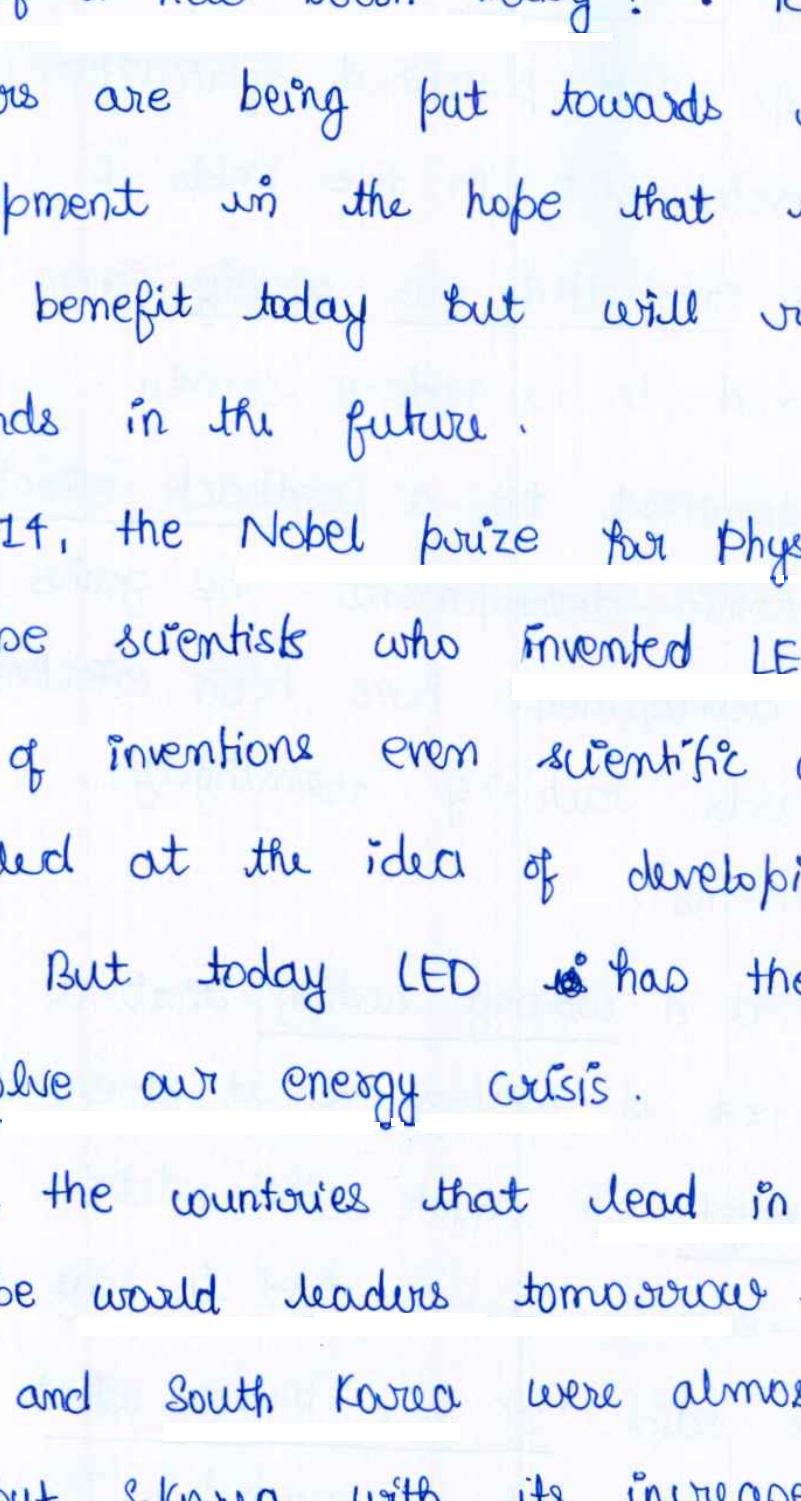 are being put towards
pment in the hope that
benefit today but will
nds in the future.
14, the Nobel prize for Phys
scientists who invented LE
of inventions even scientific
led at the idea of developi
But today LED has the
lve our energy crisis.
the countries that lead in
be world leaders tomorrow
and South Korea were almos
with its increase